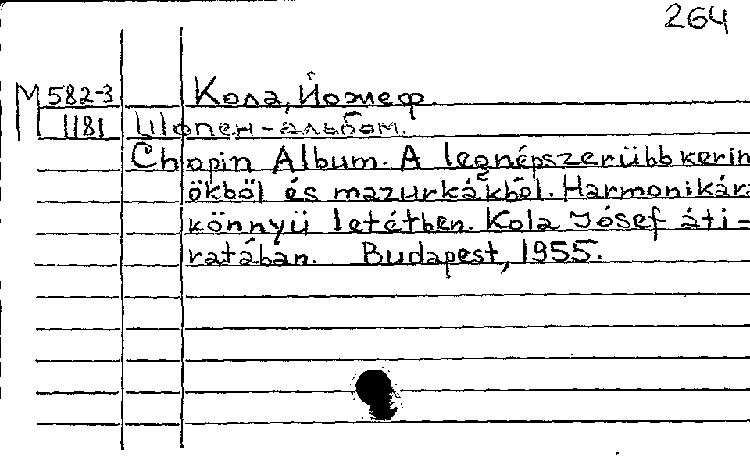 264
М 582-3 Кола, Йожеф.
1181 Шопен-альбом.
Chopin Album. A legnépszerübb kerin
ökből és mazurkákból. Harmonikára
könnyü letétben. Kola Jósef áti-
ratában. Budapest, 1955.